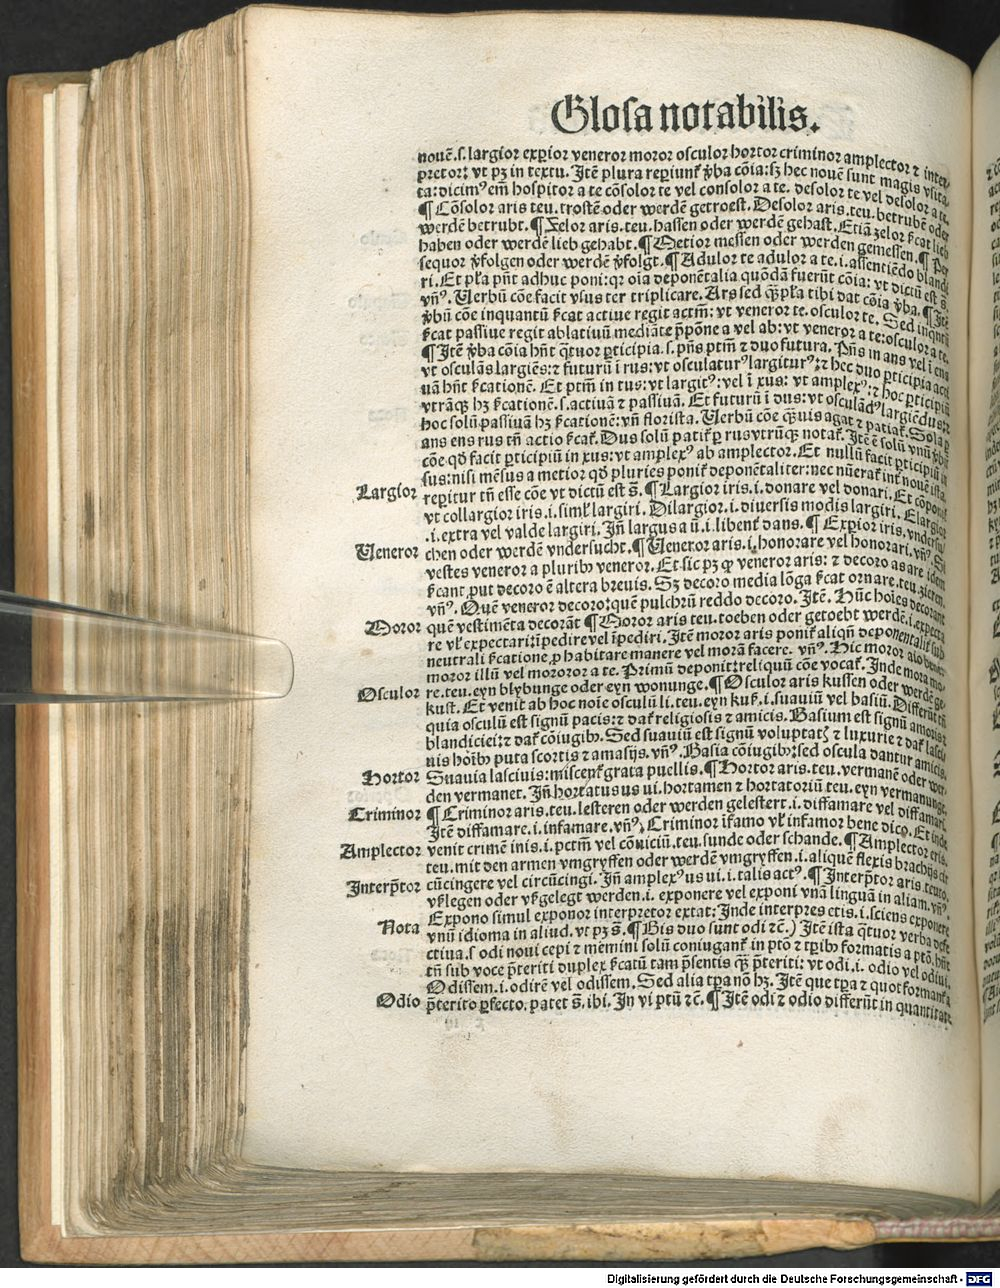 Glosa notabilis.
nouē.s. largior experior veneror moror osculor hortor criminor amplector ⁊ inter-
pretor: vt pꝫ in textu. Itē plura reperiunt̃ v̓ba cōia: sꝫ hec nouē sunt magis vsita
ta: dicimꝰ em̄ hospitor a te cōsolor te vel consolor a te. desolor te vel desolor a te.
¶ Cōsolor aris teu. trostē oder werdē getroest. Desolor aris. teu. betrubē oder
werdē betrubt. ¶ Zelor aris. teu. hassen oder werdē gehast. Etiā zelor ſcat lieb
haben oder werdē lieb gehabt. ¶ Metior messen oder werden gemessen. ¶ Per
sequor v̓folgen oder werdē v̓folgt. ¶ Adulor te adulor a te .i. assentiēdo blandi
ri. Et pl̃a pn̄t adhuc poni: qꝛ oīa deponētalia quōdā fuerūt cōia: vt dictū est s̄.
vn̄ꝰ. Uerbū cōe facit vsus ter triplicare. Ars sed qꝫpl̃a tibi dat cōia v̓ba. ¶ Itē
v̓bū cōe inquantū ſcat actiue regit actm̄: vt veneror te. osculor te. Sed inqntū
ſcat passiue regit ablatiuū mediāte p̄pōne a vel ab: vt veneror a te: osculor a te.
¶ Itē v̓ba cōia hn̄t qtuor ꝑticipia .s. pn̄s ptm̄ ⁊ duo futura. Pn̄s in ans vel ī ens
vt osculās largiēs: ⁊ futurū ī rus: vt osculaturꝰ largiturꝰ: ⁊ hec duo ꝑticipia acti
uā hn̄t ſcationē. Et ptm̄ in tus: vt largitꝰ: vel ī xus: vt amplexꝰ: ⁊ hoc ꝑticipiū
vtrāqꝫ hꝫ ſcationē .s. actiuā ⁊ passiuā. Et futurū ī dus: vt osculādꝰ largiēdus: ⁊
hoc solū passiuā hꝫ ſcationē: vn̄ florista. Uerbū cōe qꝫuis agat ⁊ patiat̃. Sola ꝑ
ans ens rus tn̄ actio ſcat̃. Dus solū patit̃ ꝑ rus vtrūqꝫ notat̃. Itē ē solū vnū v̓bū
cōe qd̓ facit ꝑticipiū in xus: vt amplexꝰ ab amplector. Et nullū facit ꝑticipiū in
sus: nisi mēsus a metior qd̓ pluries ponit̃ deponētaliter: nec nūerat̃ int̃ nouē ista.
Largior reꝑitur tn̄ esse cōe vt dictū est s̄. ¶ Largior iris .i. donare vel donari. Et cōponit̃
vt collargior iris .i. simĺ largiri. Dilargior .i. diuersis modis largiri. Elargior
.i. extra vel valde largiri. Jn̄ largus a ū .i. libent̃ dans. ¶ Exꝑior iris. vndersu/
Ueneror chen oder werdē vndersucht. ¶ Ueneror aris .i. honorare vel honorari. vn̄ꝰ. Si
vestes veneror a pluribꝰ veneror. Et sic pꝫ ꝙ veneror aris: ⁊ decoro as are idem
ſcant. put decoro ē altera breuis. Sꝫ decoro media lōga ſcat ornare. teu. zieren.
vn̄ꝰ. Quē veneror decoro: quē pulchrū reddo decoro. Itē. Hūc hoīes decorant
Moror quē vestimēta decorāt ¶ Moror aris teu. toeben oder getoebt werdē .i. expecta
re vĺ expectari: īpedire vel īpediri. Itē moror aris ponit̃ aliqn̄ deponentalit̃ sub
neutrali ſcatione. ꝓ habitare manere vel morā facere. vn̄ꝰ. Hic moror
moror illū vel mororor a te. Primū deponit: reliquū cōe vocat̃. Inde mora mo-
Osculor re. teu. eyn blybunge oder eyn wonunge. ¶ Osculor aris kussen oder werdē ge-
kust. Et venit ab hoc noīe osculū li. teu. eyn kuß .i. suauiū vel basiū. Differūt tn̄
quia osculū est signū pacis: ⁊ dat̃ religiosis ⁊ amicis. Basium est signū amoris ⁊
blandiciei: ⁊ dat̃ cōiugibꝰ. Sed suauiū est signū voluptatꝫ ⁊ luxurie ⁊ dat̃ lasci
uis hoībꝰ puta scortis ⁊ amasijs. vn̄ꝰ. Basia cōiugibꝰ: sed oscula dantur amicis.
Hortor Suauia lasciuis: miscent̃ grata puellis. ¶ Hortor aris. teu. vermanē oder wer-
den vermanet. Jn̄ hortatus us ui. hortamen ⁊ hortatoriū teu. eyn vermanunge.
Criminor ¶ Criminor aris. teu. lesteren oder werden gelestert .i. diffamare vel diffamari.
Itē diffamare .i. infamare. vn̄ꝰ. Criminor īfamo vĺ infamor bene dico. Et inde
Amplector venit crimē inis .i. pctm̄ vel cōuiciū. teu. sunde oder schande. ¶ Amplector eris.
teu. mit den armen vmgryffen oder werdē vmgryffen .i. aliquē flexis brachijs cir
Interp̄tor cūcingere vel circūcingi. Jn̄ amplexꝰ us ui .i. talis actꝰ. ¶ Interp̄tor aris. teuto.
vßlegen oder vßgelegt werden .i. exponere vel exponi vnā linguā in aliam. vn̄ꝰ.
Expono simul exponor interpretor extat: Inde interpres etis .i. sciens exponere
Nota vnū idioma in aliud. vt pꝫ s̄. ¶ Bis duo sunt odi ⁊c̄.) Itē ista qtuor verba defe
ctiua .s. odi noui cepi ⁊ memini solū coniugant̃ in ptō ⁊ tꝑibꝰ formatis a ptō. hn̄t
tn̄ sub voce p̄teriti duplex ſcatū tam p̄sentis qꝫ p̄teriti: vt odi .i. odio vel odiui.
Odissem .i. odirē vel odissem. Sed alia tꝑa nō hꝫ. Itē que tꝑa ⁊ quot formant̃ a
Odio p̄terito ꝑfecto. patet s̄. ibi. In vi ptū ⁊c̄. ¶ Itē odi ⁊ odio differūt in quantitate
Digitalisierung gefördert durch die Deutsche Forschungsgemeinschaft - DFG